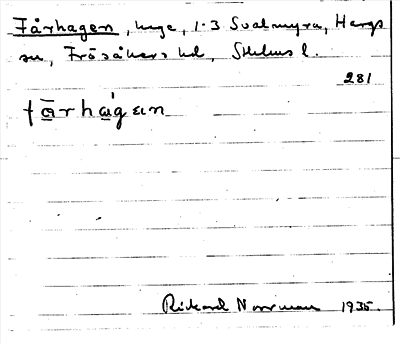 Fårhagen, hage, 1-3 Svalmyra, Hargs
sn, Frösåkers hd, Sthlms l.
281
fårhagɛn
Rickard Norrman 1935.